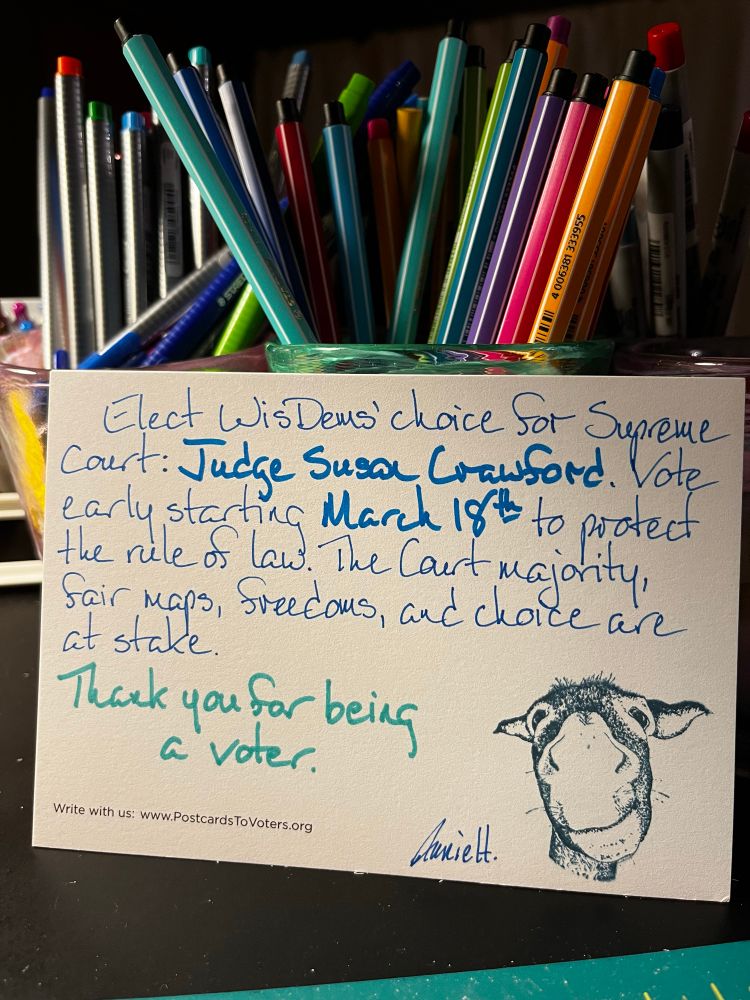 4 006381 333955
Elect WisDems' choice for Supreme
Court: Judge Susan Crawford. Vote
early starting March 18th to protect
the rule of law. The Court majority,
fair maps, freedoms, and choice are
at stake.
Thank you for being
a voter.
Write with us: www.PostcardsToVoters.org